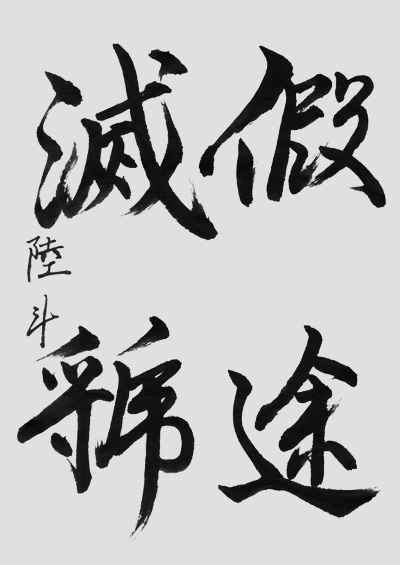 假途
滅虢
陸斗